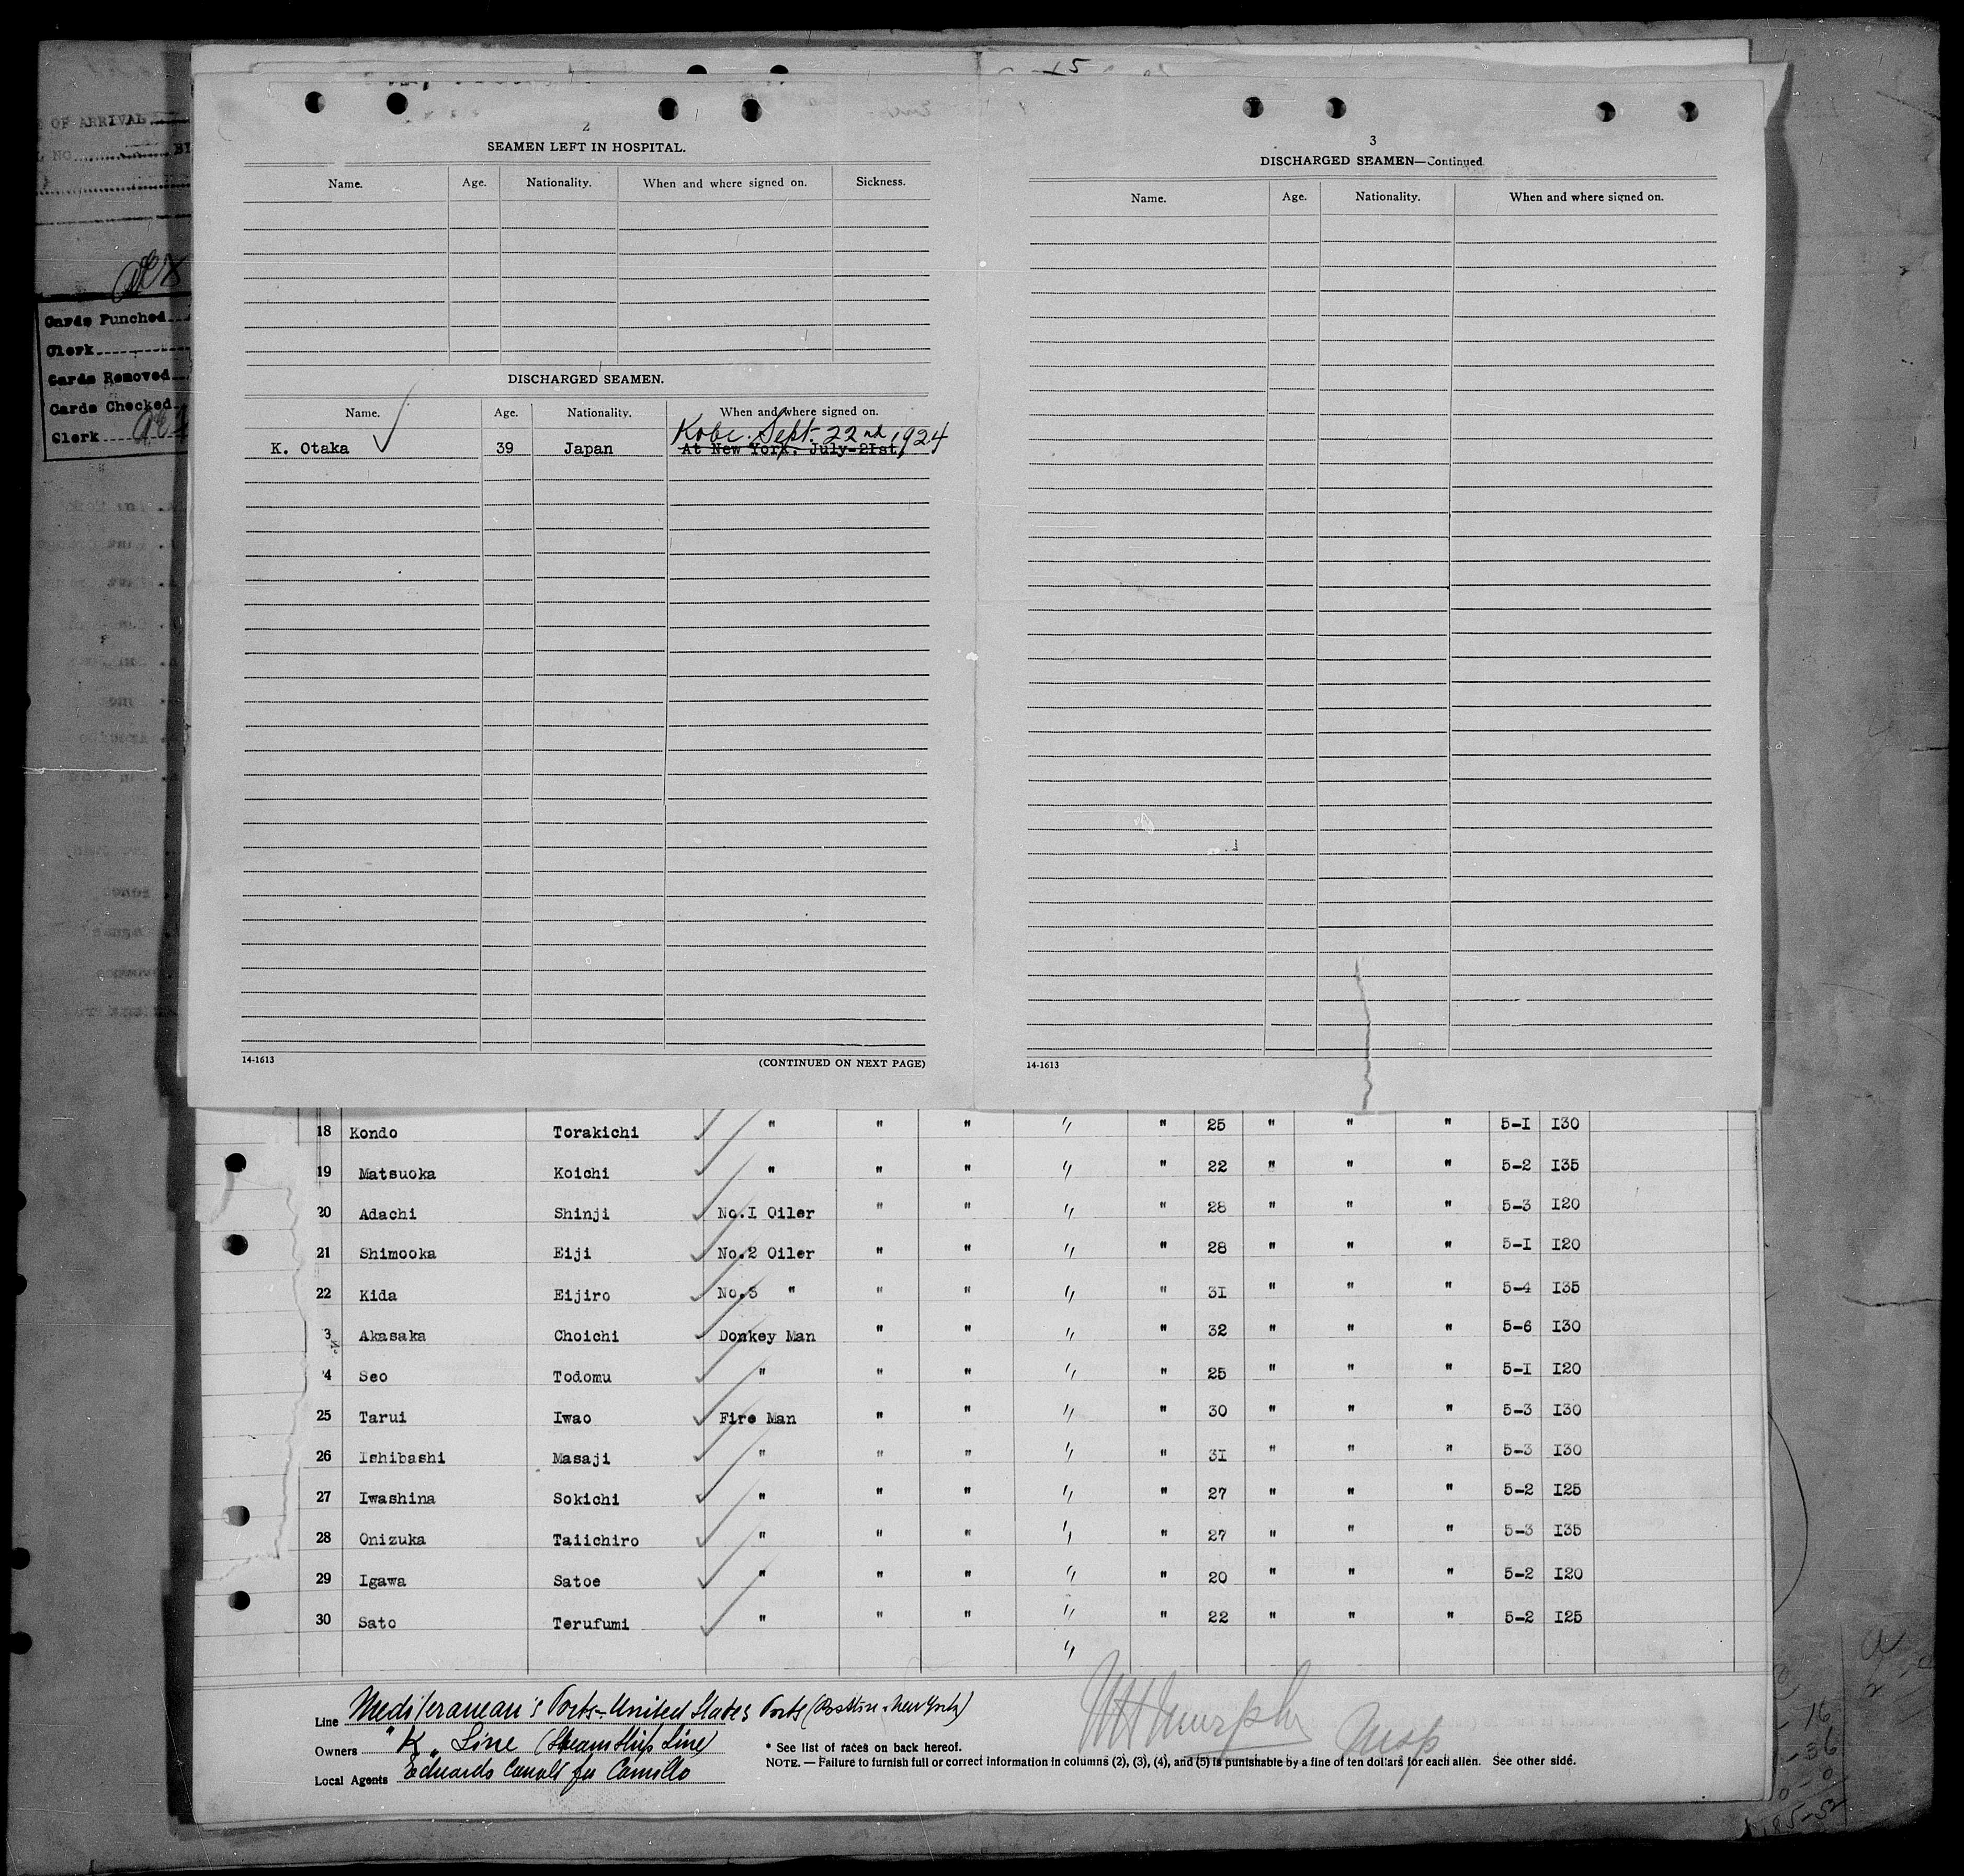 OF ARRIVAL
NO.
Cards Punched
Clerk
Cards Removed
Cards Checked
Clerk
2
SEAMEN LEFT IN HOSPITAL.
Name. Age. Nationality. When and where signed on. Sickness.
DISCHARGED SEAMEN.
Name. Age. Nationality. When and where signed on.
Kobe. Sept. 22nd, 1924
K. Otaka 39 Japan At New York. July-21st
14-1613 (CONTINUED ON NEXT PAGE)
3
DISCHARGED SEAMEN—Continued
Name. Age. Nationality. When and where signed on.
14-1613
18 Kondo Torakichi " " " " " 25 " " " 5-1 130
19 Matsuoka Koichi " " " " " 22 " " " 5-2 135
20 Adachi Shinji No.1 Oiler " " " " 28 " " " 5-3 120
21 Shimooka Eiji No.2 Oiler " " " " 28 " " " 5-1 120
22 Kida Eijiro No.3 " " " " " 31 " " " 5-4 135
3 Akasaka Choichi Donkey Man " " " " 32 " " " 5-6 130
4 Seo Todomu " " " " " 25 " " " 5-1 120
25 Tarui Iwao Fire Man " " " " 30 " " " 5-3 130
26 Ishibashi Masaji " " " " " 31 " " " 5-3 130
27 Iwashina Sokichi " " " " " 27 " " " 5-2 125
28 Onizuka Taiichiro " " " " " 27 " " " 5-3 135
29 Igawa Satoe " " " " " 20 " " " 5-2 120
30 Sato Terufumi " " " " " 22 " " " 5-2 125
"
Line Mediteranean's Ports-United States Ports (Boston-New York)
Owners "K" Line (Steam Ship Line)
Local Agents Eduardo Canali fu Camillo
WH Murphy Insp
* See list of races on back hereof.
NOTE.—Failure to furnish full or correct information in columns (2), (3), (4), and (5) is punishable by a fine of ten dollars for each alien. See other side.